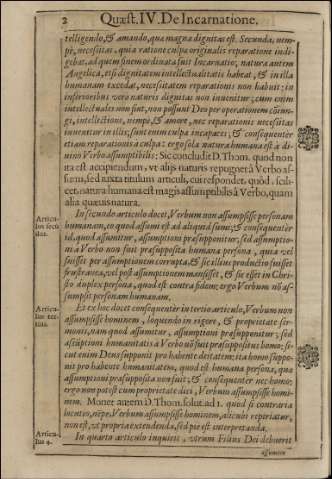 2 Quæst. IV. De Incarnatione.
telligendo, & amando, qua magna dignitas est. Secunda, nem-
pè, necessitas, quia ratione culpæ originalis reparatione indi-
gebat, ad quem finem ordinata fuit Incarnatio, natura autem
Angelica, etsi dignitatem intellectualitatis habeat, & in illa
humanam excedat, necessitatem reparationis non habuit: in
inferioribus verò naturis dignitas non inuenitur, cùm enim
intellectuales non sint, non possunt Deo per operationem cōiun-
gi, intellectione, nimpè, & amore, nec reparationis necessitas
inuenitur in illis, sunt enim culpæ incapaces, & consequentèr
etiam reparationis a culpa: ergo sola natura humana est à di-
uino Verbo assumptibilis: Sic concludit D. Thom. quod non
ita est accipiendum, vt alijs naturis repugnet à Verbo as-
sumi, sed iuxta titulum articuli, cui respondet, quòd, scili-
cet, natura humana est magis assumptibilis à Verbo, quam
alia quæuis natura.
Articu-
lus secũ
dus.
In secundo articulo docet, Verbum non assumpsisse personam
humanam, eo quod assumi est ad aliquid sumi, & consequentèr
id, quod assumitur, assumptioni præsupponitur, sed assumptio-
ni à Verbo non fuit præsupposita humana persona, quia vel
fuisset per assumptionem corrupta, & sic illius productio fuisset
frustranea, vel post assumptionem mansisset, & sic esset in Chri-
sto duplex persona, quod est contra fidem: ergo Verbum nō as-
sumpsit personam humanam.
Articu-
lus ter-
tius.
Et ex hoc docet consequenter in tertio articulo, Verbum non
assumpsisse hominem, loquendo in rigore, & proprietate ser-
monis, nam quod assumitur, assumptioni præsupponitur, sed
assũptioni humanitatis à Verbo nō fuit præsuppositus homo; si-
cut enim Deus supponit pro habente deitatem: ita homo suppo-
nit pro habente humanitatem, quod est humana persona, quæ
assumptioni præsupposita non fuit, & consequenter nec homo:
ergo non potest cum proprietate dici, Verbum assumpsisse homi-
nem. Monet autem D. Thom. solut. ad 1. quòd si contraria
locutio, nẽpe, Verbum assumpsisse hominem, alicubi repriatur,
non est, vt propria extendenda, sed pie est interpretanda.
Articu-
lus 4.
In quarto articulo inquirit, vtrum Filius Dei debuerit
assumere